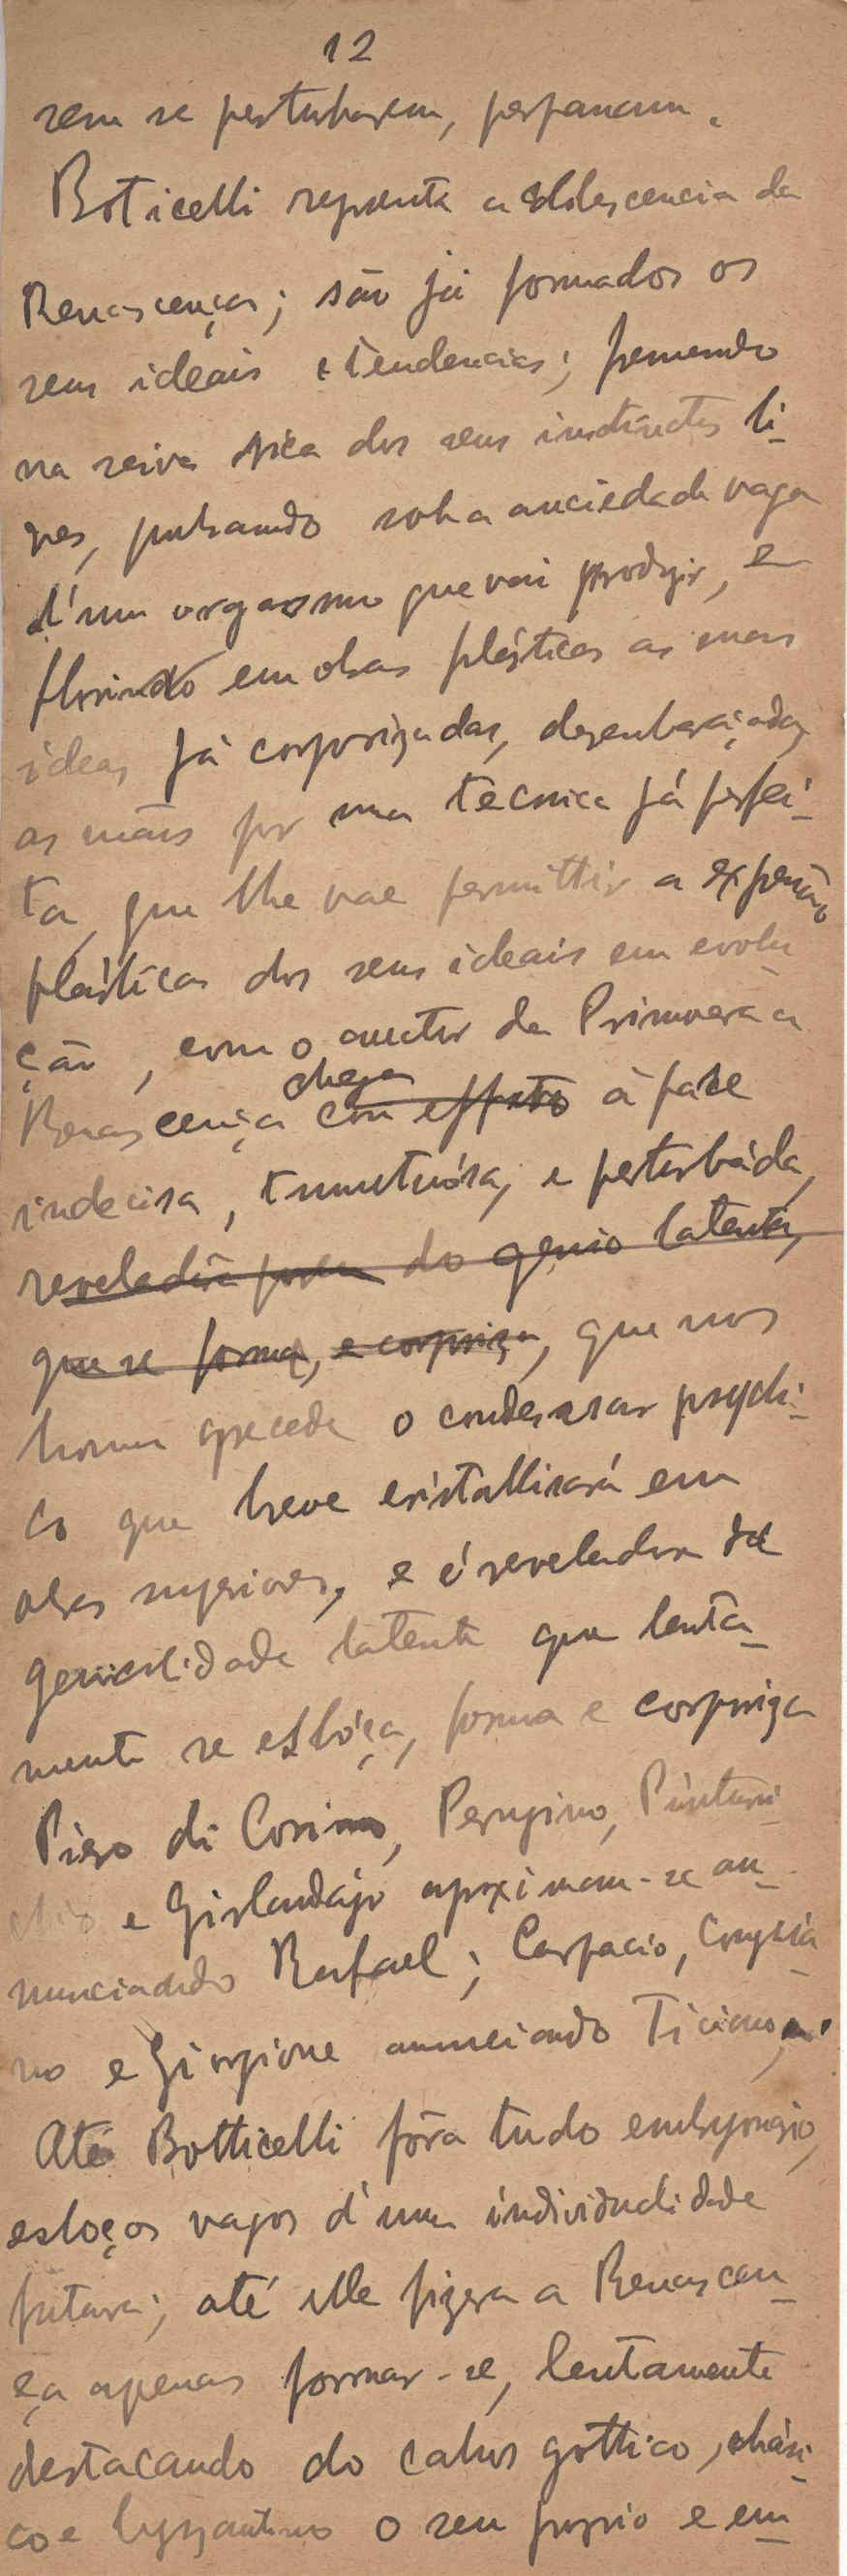 12
sem se perturbarem, perpassam.
Boticelli representa a adolescencia da
Renascença; são já formados os
seus ideais e tendencias; fremendo
na seiva rica dos seus instinctos li-
vres, pulsando sob a anciedade vaga
d'um orgasmo que vai produzir, e
florindo em obras plásticas as suas
ideas já corporizadas, desembaraçadas
as mãos por uma técnica já perfei-
ta, que lhe vae permittir a expressão
plástica dos seus ideais em evolu
ção, com o auctor da Primavera a
Renascença chega com effeito à fase
indecisa, tumultuósa, e perturbáda,
reveladôra do genio latente,
que se forma, e corporiza, que nos
homem precede o condensar psychi-
co que breve cristallisará em
obras superiores, e é reveladora da
genialidade latente que lenta-
mente se esbóça, forma e corporiza
Piero di Cosimo, Perugino, Pinturi
chio e Girlandájo aproximam-se an-
nunciando Rafael; Carpacio, Conegliá-
no e Giorgione anunciando Ticiano,
Até Botticelli fôra tudo embryonário,
esboços vagos d'uma individualidade
futura; até elle fizera a Renascen-
ça apenas formar-se, lentamente
destacando do cahos gothico, clássi-
co e byzantino o seu proprio e em-